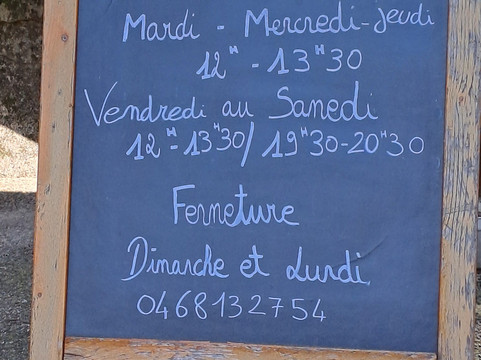 Mardi - Mercredi - Jeudi
12H - 13H30
Vendredi au Samedi
12H - 13H30 / 19H30 - 20H30
Fermeture
Dimanche et Lundi
0468132754